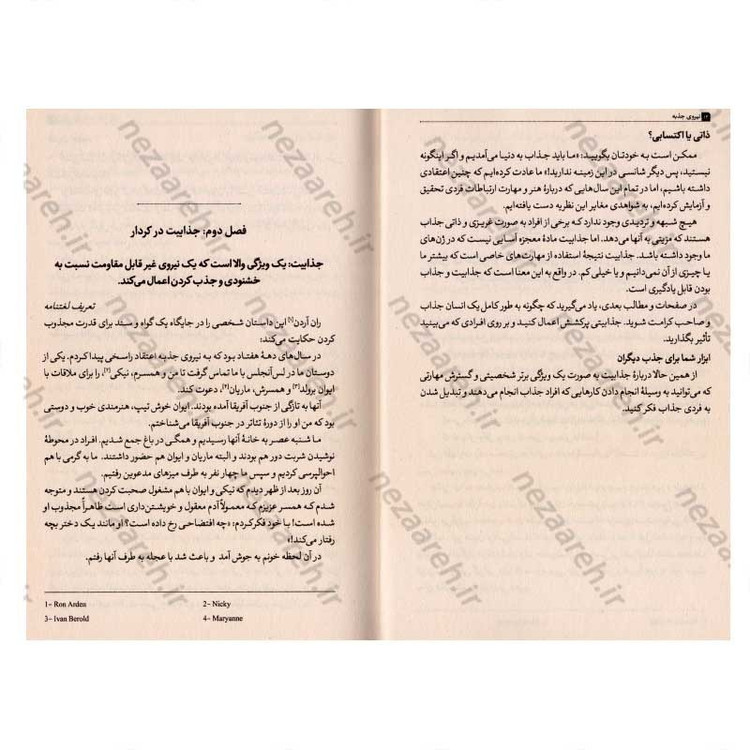 ۱۲ نیروی جذبه
ذاتی یا اکتسابی؟
ممکن است به خودتان بگویید: «ما باید جذاب به دنیا می‌آمدیم و اگر اینگونه
نیستید، پس دیگر شانسی در این زمینه ندارید!» ما عادت کرده‌ایم که چنین اعتقادی
داشته باشیم، اما در تمام این سال‌هایی که دربارهٔ هنر و مهارت ارتباطات فردی تحقیق
و آزمایش کرده‌ایم، به شواهدی مغایر این نظریه دست یافته‌ایم.
هیچ شبهه و تردیدی وجود ندارد که برخی از افراد به صورت غریزی و ذاتی جذاب
هستند که مزیتی به آنها می‌دهد. اما جذابیت مادهٔ معجزه آسایی نیست که در ژن‌های
ما وجود داشته باشد. جذابیت نتیجهٔ استفاده از مهارت‌های خاصی است که بیشتر ما
یا چیزی از آن نمی‌دانیم و یا خیلی کم. در واقع به این معنا است که جذابیت و جذاب
بودن قابل یادگیری است.
در صفحات و مطالب بعدی، یاد می‌گیرید که چگونه به طور کامل یک انسان جذاب
و صاحب کرامت شوید. جذابیتی پرکشش اعمال کنید و بر روی افرادی که می‌بینید
تأثیر بگذارید.
ابزار شما برای جذب دیگران
از همین حالا دربارهٔ جذابیت به صورت یک ویژگی برتر شخصیتی و گسترش مهارتی
که می‌توانید به وسیلهٔ انجام دادن کارهایی که افراد جذاب انجام می‌دهند و تبدیل شدن
به فردی جذاب فکر کنید.
فصل دوم: جذابیت در کردار
جذابیت: یک ویژگی والا است که یک نیروی غیر قابل مقاومت نسبت به
خشنودی و جذب کردن اعمال می‌کند.
تعریف لغتنامه
ران آردن[۱] این داستان شخصی را در جایگاه یک گواه و سند برای قدرت مجذوب
کردن حکایت می‌کند:
در سال‌های دههٔ هفتاد بود که به نیروی جذبه اعتقاد راسخی پیدا کردم. یکی از
دوستان ما در لس‌آنجلس با ما تماس گرفت تا من و همسرم، نیکی[۲]، را برای ملاقات با
ایوان برولد[۳] و همسرش، ماریان[۴]، دعوت کند.
آنها به تازگی از جنوب آفریقا آمده بودند. ایوان خوش تیپ، هنرمندی خوب و دوستی
بود که من او را از دورهٔ تئاتر در جنوب آفریقا می‌شناختم.
ما شنبه عصر به خانهٔ آنها رسیدیم و همگی در باغ جمع شدیم. افراد در محوطهٔ
نوشیدن شربت دور هم بودند و البته ماریان و ایوان هم حضور داشتند. ما به گرمی با هم
احوالپرسی کردیم و سپس ما چهار نفر به طرف میزهای مدعوین رفتیم.
آن روز بعد از ظهر دیدم که نیکی و ایوان با هم مشغول صحبت کردن هستند و متوجه
شدم که همسر عزیزم که معمولاً آدم معقول و خویشتن‌داری است ظاهراً مجذوب او
شده است! با خود فکر کردم: «چه افتضاحی رخ داده است؟ او مانند یک دختر بچه
رفتار می‌کند!»
در آن لحظه خونم به جوش آمد و باعث شد با عجله به طرف آنها رفتم.
1- Ron Arden 2- Nicky
3- Ivan Berold 4- Maryanne
nezaareh.ir